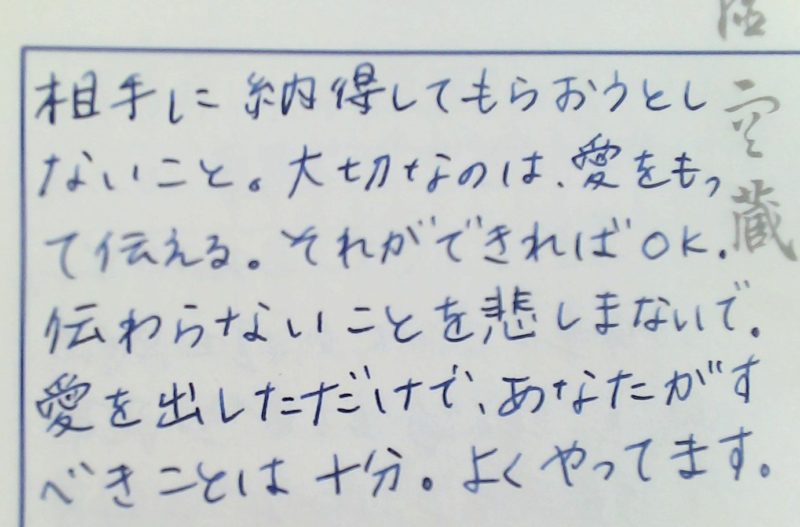 相手に納得してもらおうとし
ないこと。大切なのは、愛をもっ
て伝える。それができればOK.
伝わらないことを悲しまないで。
愛を出しただけで、あなたがす
べきことは十分。よくやってます。
空蔵